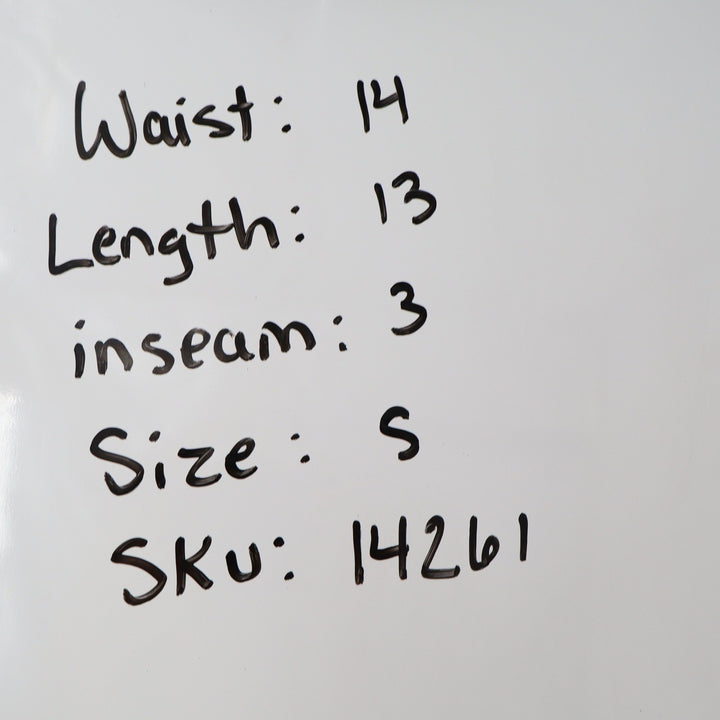 Waist: 14
Length: 13
inseam: 3
Size: S
SKU: 14261